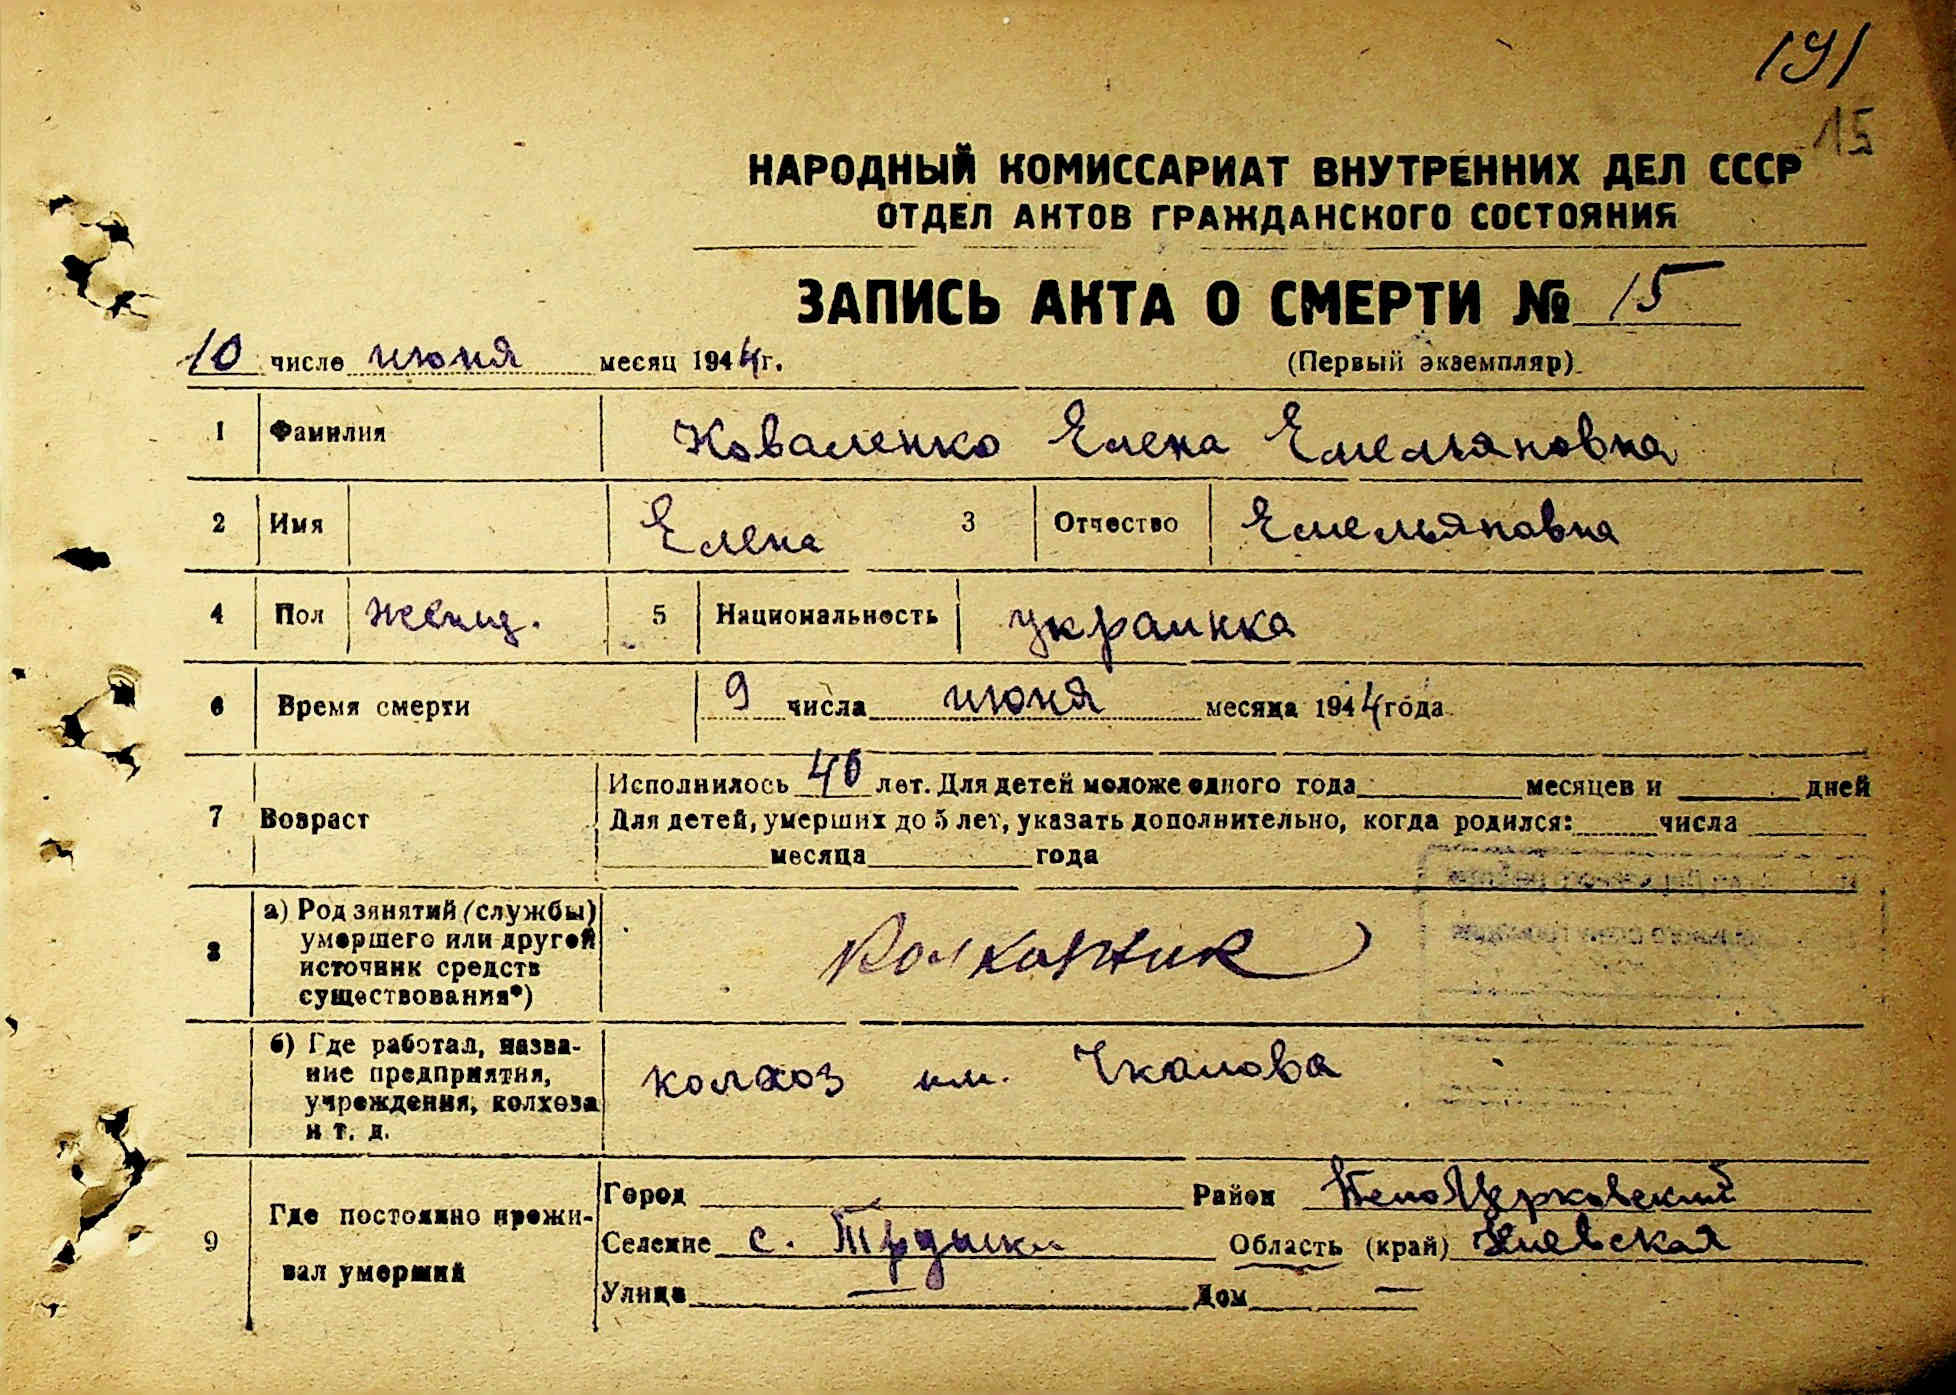 191
15
НАРОДНЫЙ КОМИССАРИАТ ВНУТРЕННИХ ДЕЛ СССР
ОТДЕЛ АКТОВ ГРАЖДАНСКОГО СОСТОЯНИЯ
ЗАПИСЬ АКТА О СМЕРТИ № 15
10 число июня месяц 1944г. (Первый экземпляр)
1 Фамилия Коваленко Елена Емельяновна
2 Имя Елена 3 Отчество Емельяновна
4 Пол женщ. 5 Национальность украинка
6 Время смерти 9 числа июня месяца 1944 года
Исполнилось 46 лет. Для детей моложе одного года месяцев и дней
7 Возраст Для детей, умерших до 5 лет, указать дополнительно, когда родился: числа
месяца года
8 а) Род занятий (службы)
умершего или другой
источник средств
существования*)
Колхозник
б) Где работал, назва-
ние предприятия,
учреждения, колхоза
и т. д.
колхоз им. Чкалова
9 Где постоянно прожи-
вал умерший
Город Район БелоЦерковский
Селение с. Область (край) Киевская
Улица — Дом —